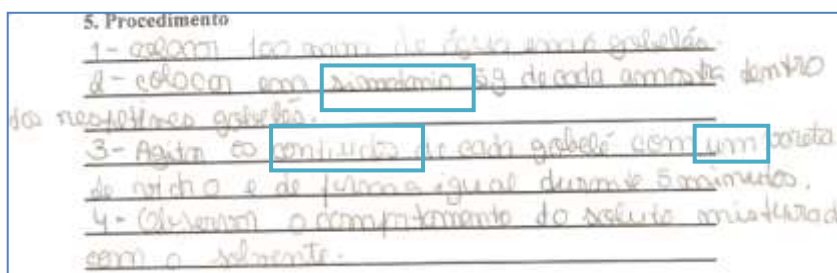 5. Procedimento
1- colocar 100 mm de água em 6 gobelés.
2- colocar em simotania 5g de cada amostra dentro
dos respetivos gobelés.
3- Agitar os contiudos de cada gobelé com um vareta
de vidro e de forma igual durante 5 minutos.
4- Observar o comportamento do soluto misturad
com o solvente.